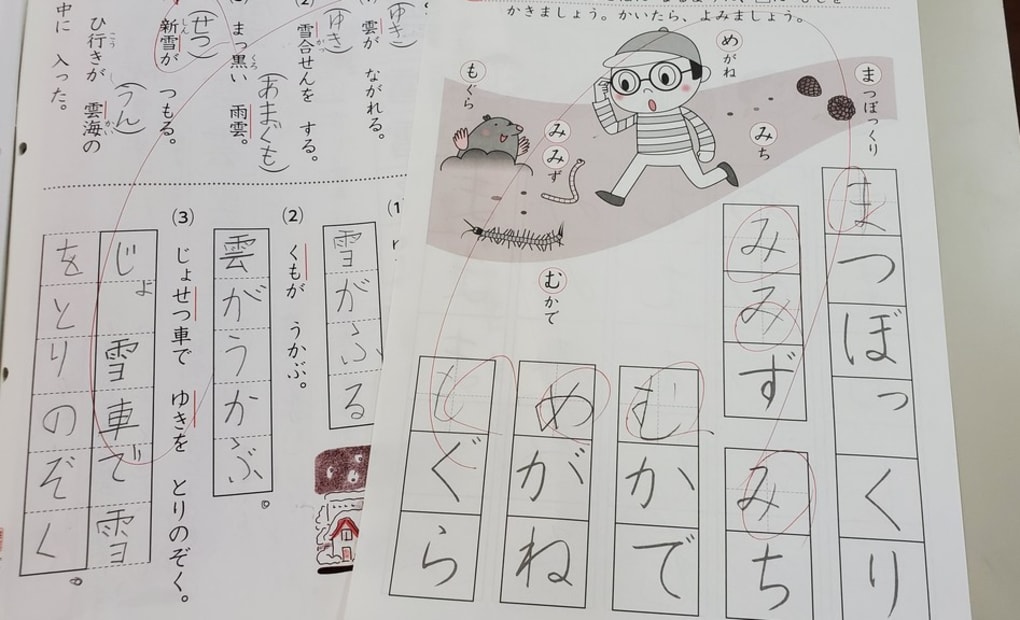 かきましょう。かいたら、よみましょう。
まつぼっくり
めがね
みち
みみず
もぐら
むかで
まつぼっくり
みみず
みち
むかで
めがね
もぐら
(ゆき)
雲が ながれる。
(2)
(ゆき)
雪合せんを する。
がっ
(あまぐも)
まっ黒い 雨雲。
くろ
(せつ)
新雪が つもる。
しん
(うん)
ひ行きが 雲海の
こう
かい
中に 入った。
(1)
雪がふる
(2)
くもが うかぶ。
雲がうかぶ
(3)
じょせつ車で ゆきを とりのぞく。
じょ雪車で雪
をとりのぞく